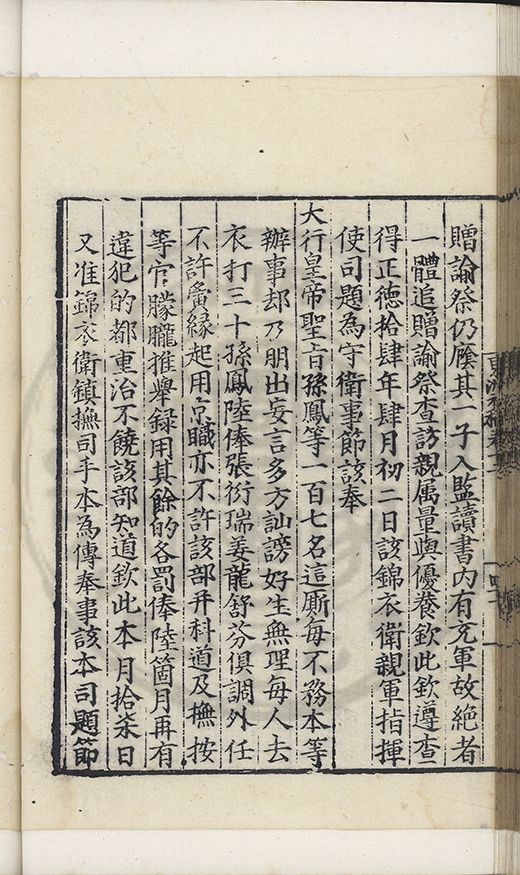 贈諭祭仍廕其一子入監讀書内有充軍故絶者
一體追贈諭祭查訪親属量與優養欽此欽遵查
得正德拾肆年肆月初二日該錦衣衛親軍指揮
使司題為守衛事節該奉
大行皇帝聖旨孫鳳等一百七名這厮每不務本等
辦事却乃朋出妄言多方訕謗好生無理每人去
衣打三十孫鳳陸俸張衍瑞姜龍舒芬俱調外任
不許夤緣起用京職亦不許該部并科道及撫按
等官朦朧推舉録用其餘的各罰俸陸箇月再有
違犯的都重治不饒該部知道欽此本月拾柒日
又准錦衣衛鎮撫司手本為傳奉事該本司題節